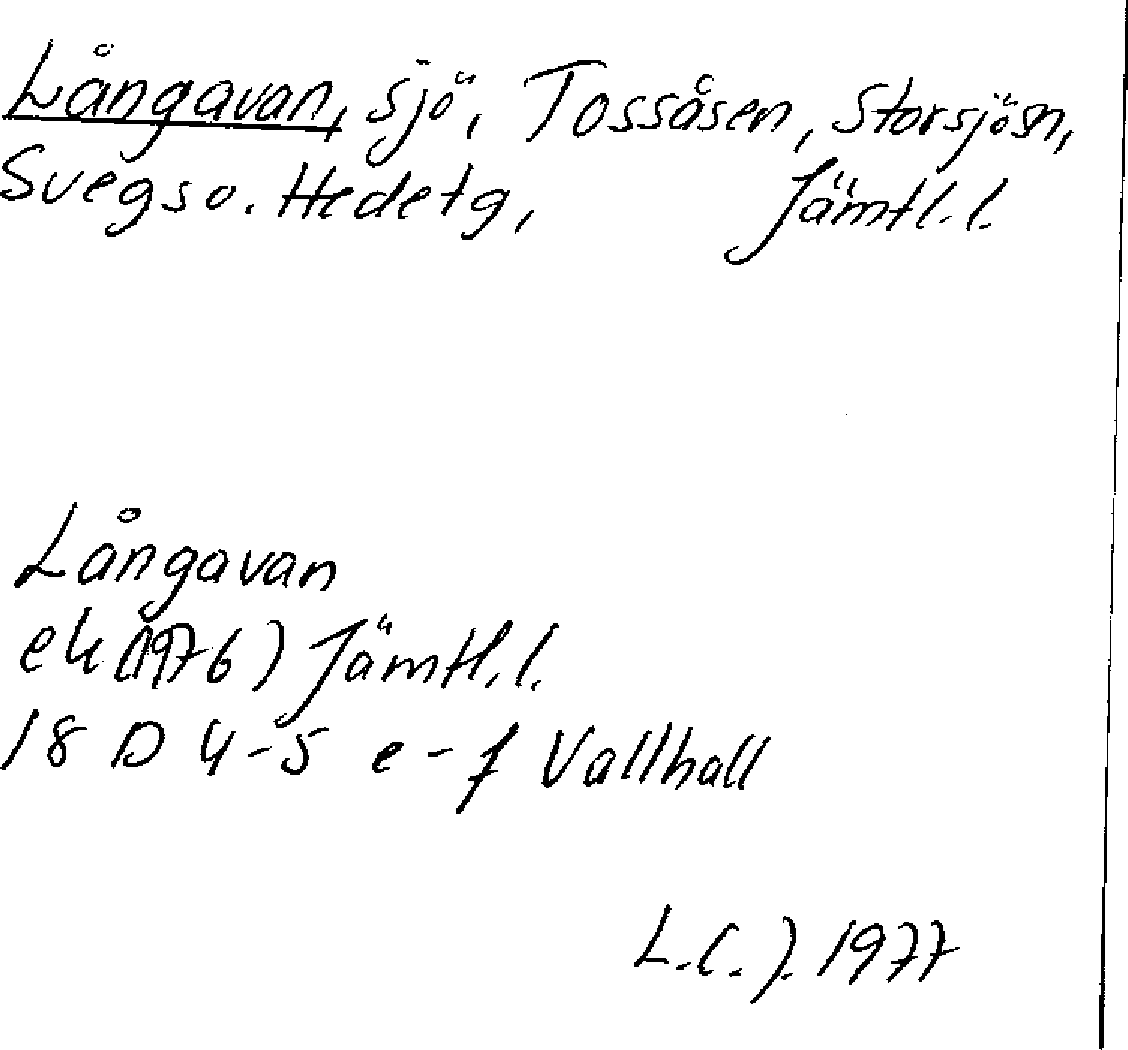 Långavan, sjö, Tossåsen, Storsjösn,
Svegs o. Hedetg, Jämtl. l.
Långavan
ek (1976) Jämtl. l.
18 D 4-5 e-f Vallhall
L.C.J. 1977